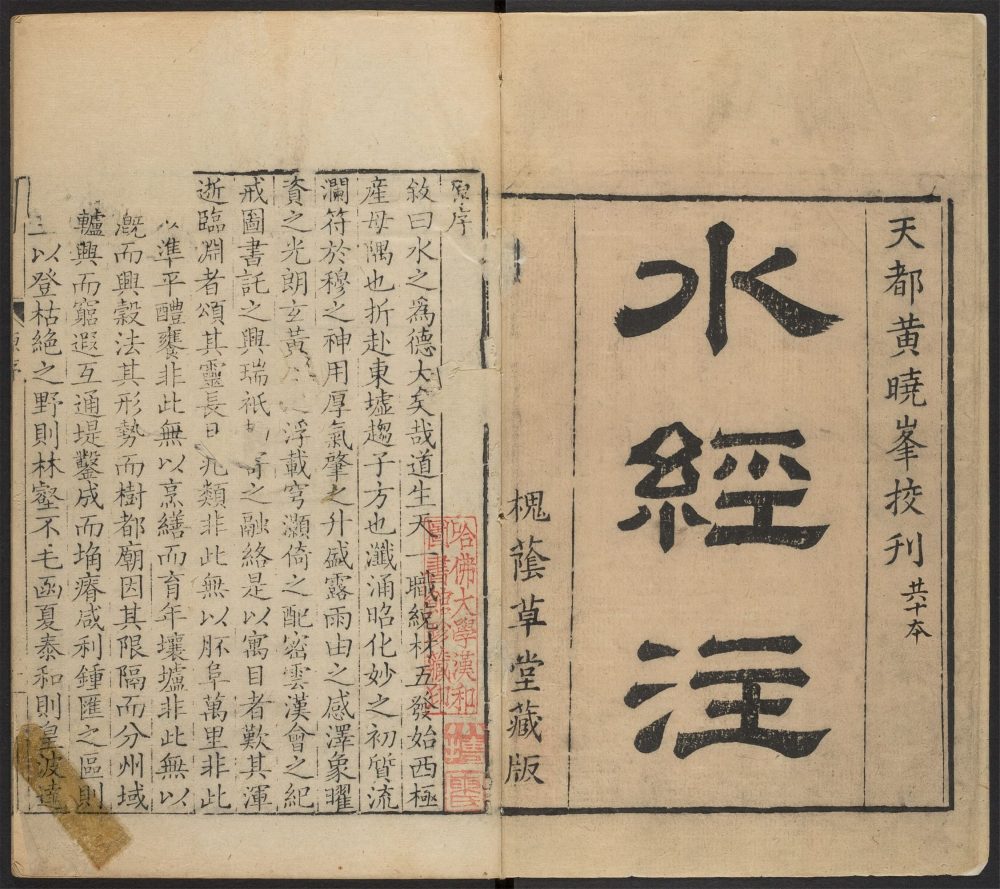 天都黄曉峯挍刋共十夲
水經注
槐蔭草堂藏版
序
敘曰水之爲德大矣哉道生天一職統材五發始西極
産母隅也折赴東墟趨子方也瀸涌昭化妙之初質流
瀾符於穆之神用厚氣肇之升盛露雨由之感澤象曜
資之光朗玄黃之浮載穹灝倚之配密雲漢會之紀
戒圖書託之興瑞祇之融絡是以寓目者歎其渾
逝臨淵者頌其靈長凡類非此無以胚阜萬里非此
以準平醴饔非此無以烹繕而育年壤壚非此無以
漑而興穀法其形勢而樹都廟因其限隔而分州域
轤興而窮遐互通堤鑿成而埆瘠咸利鍾匯之區則
以登枯絶之野則林壑不毛函夏泰和則皇波達
哈佛大學漢和
圖書館珍藏印